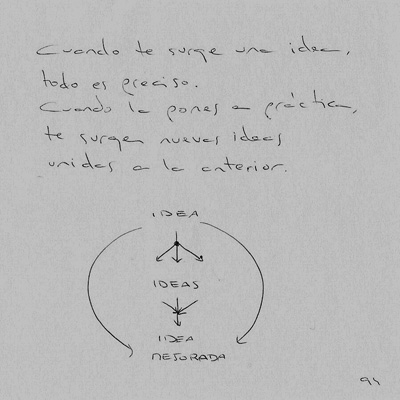 Cuando te surge una idea,
todo es preciso.
Cuando la pones a práctica,
te surgen nuevas ideas
unidas a la anterior.
IDEA
IDEAS
IDEA
MEJORADA
94